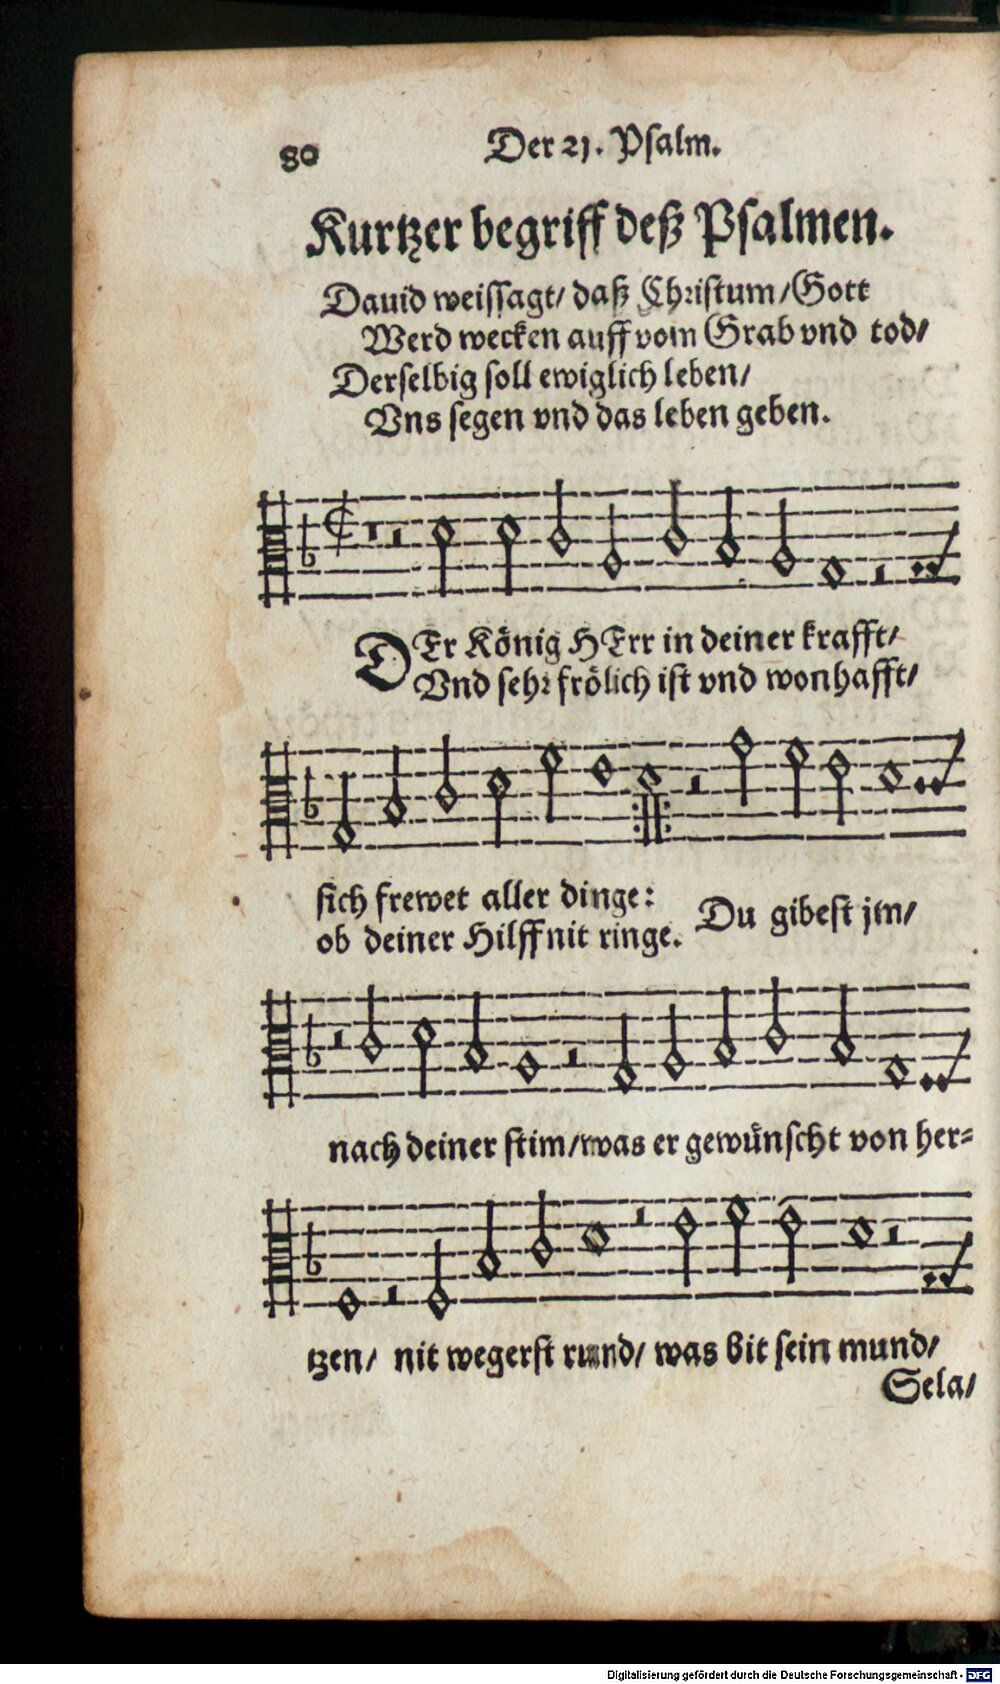 80
Der 21. Psalm.
Kurtzer begriff deß Psalmen.
Dauid weissagt/ daß Christum/Gott
Werd wecken auff vom Grab vnd tod/
Derselbig soll ewiglich leben/
Vns segen vnd das leben geben.
DEr König HErr in deiner krafft/
Vnd sehr frölich ist vnd wonhafft/
sich frewet aller dinge:
ob deiner Hilff nit ringe.
Du gibest jm/
nach deiner stim/was er gewünscht von her=
tzen/ nit wegerst rund/ was bit sein mund/
Sela/
Digitalisierung gefördert durch die Deutsche Forschungsgemeinschaft - DFG